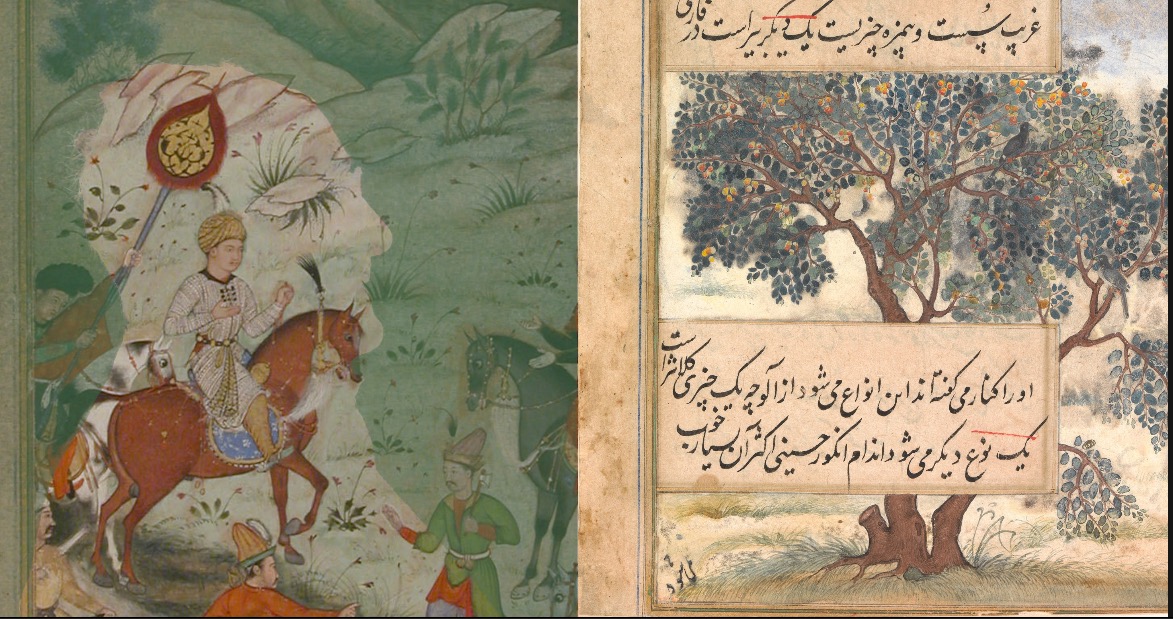 غریب پوست و بمزه چیزیست یک دیگر بیراست در فارسی
او را کنار می‌کفته‌اند این انواع می‌شود از آلوچه یک چیزی کلانتر است
یک نوع دیگر می‌شود اندام انگور حسینی اکثر آن بسیار خوب